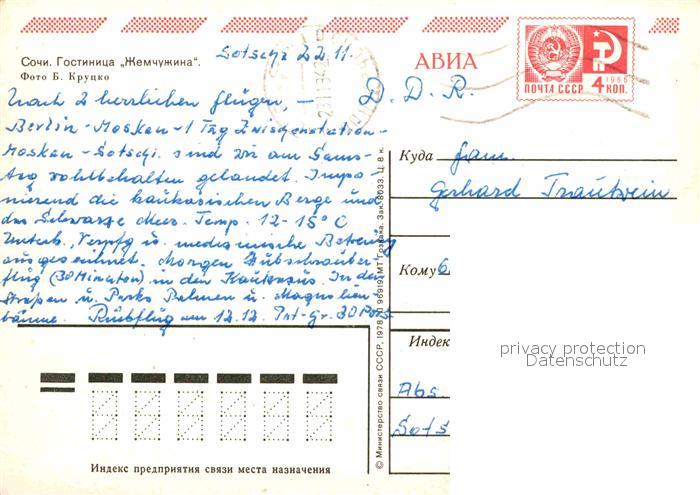 Сочи. Гостиница „Жемчужина“.
Фото Б. Круцко
Sotschi 22.11.
АВИА
ПОЧТА СССР
1966
4 КОП.
D. D. R.
Nach 2 herrlichen Flügen, –
Berlin-Moskau-1 Tag Zwischenstation-
Moskau-Sotschi. sind wir am Sams-
tag wohlbehalten gelandet. Impo-
nierend die kaukasischen Berge und
das Schwarze Meer. Temp. 12-15° C
Unterb., Verpfg u. medizinische Betreuung
ausgezeichnet. Morgen Hubschrauber-
flug (30 Minuten) in den Kaukasus. In den
Straßen u. Parks Palmen u. Magnolien
bäume. Rückflug am 12.12. Int-Gr. 30 Pers.
Куда Fam.
Gerhard Trautwein
Кому 6
Индек
privacy protection
Datenschutz
Abs.
Sots
© Министерство связи СССР, 1978
Зак. 8033. Ц. 8 к.
Индекс предприятия связи места назначения